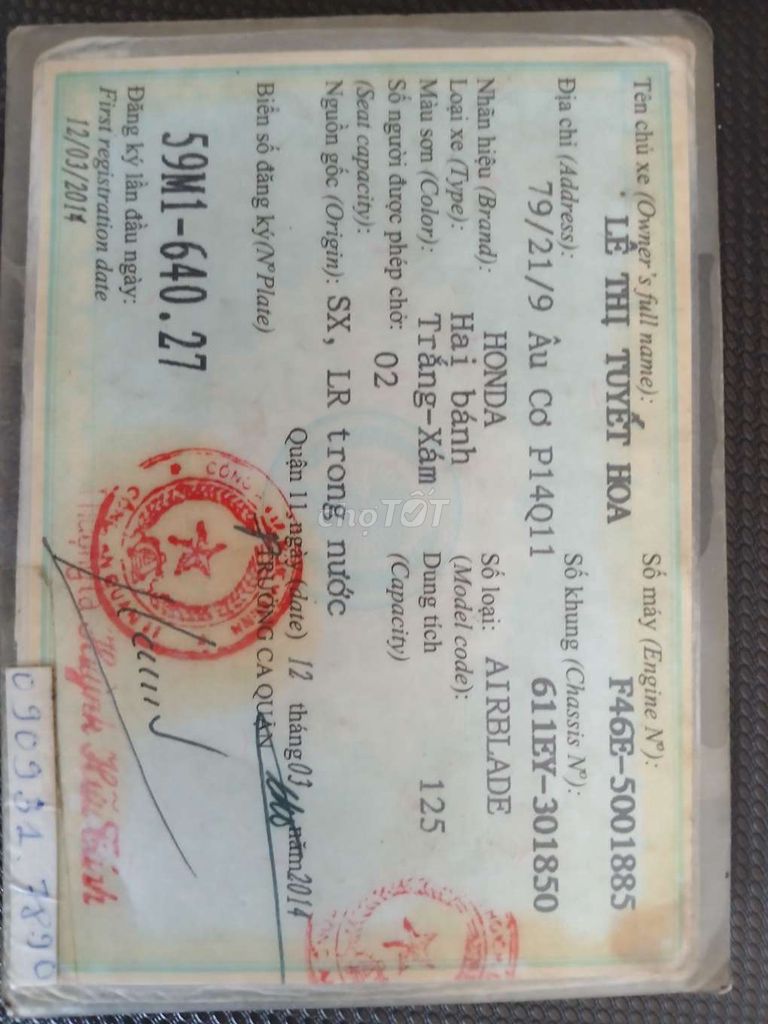 Tên chủ xe (Owner's full name):
LÊ THỊ TUYẾT HOA
Số máy (Engine Nº):
F46E-5001885
Địa chỉ (Address):
79/21/9 Âu Cơ P14Q11
Số khung (Chassis Nº):
611EY-301850
Nhãn hiệu (Brand): HONDA
Số loại: AIRBLADE
(Model code):
Loại xe (Type): Hai bánh
Màu sơn (Color): Trắng-Xám
Dung tích 125
(Capacity)
Số người được phép chở: 02
(Seat capacity):
Nguồn gốc (Origin): SX, LR trong nước
Biển số đăng ký(NºPlate)
59M1-640.27
Quận 11, ngày (date) 12 tháng 03 năm 2014
TRƯỞNG CA QUẬN
Đăng ký lần đầu ngày:
First registration date
12/03/2014
chợTỐT
CÔNG
090931.7890